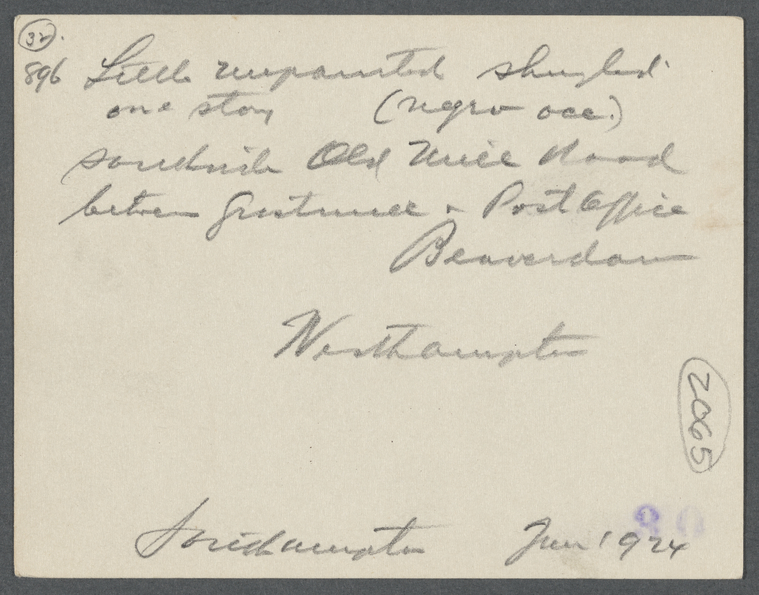 32.
896 Little unpainted shingled
one story (negro occ.)
southside Old Mill Road
between gristmill + Post Office
Beaverdam
Westhampton
2065
Southampton Jun 1924